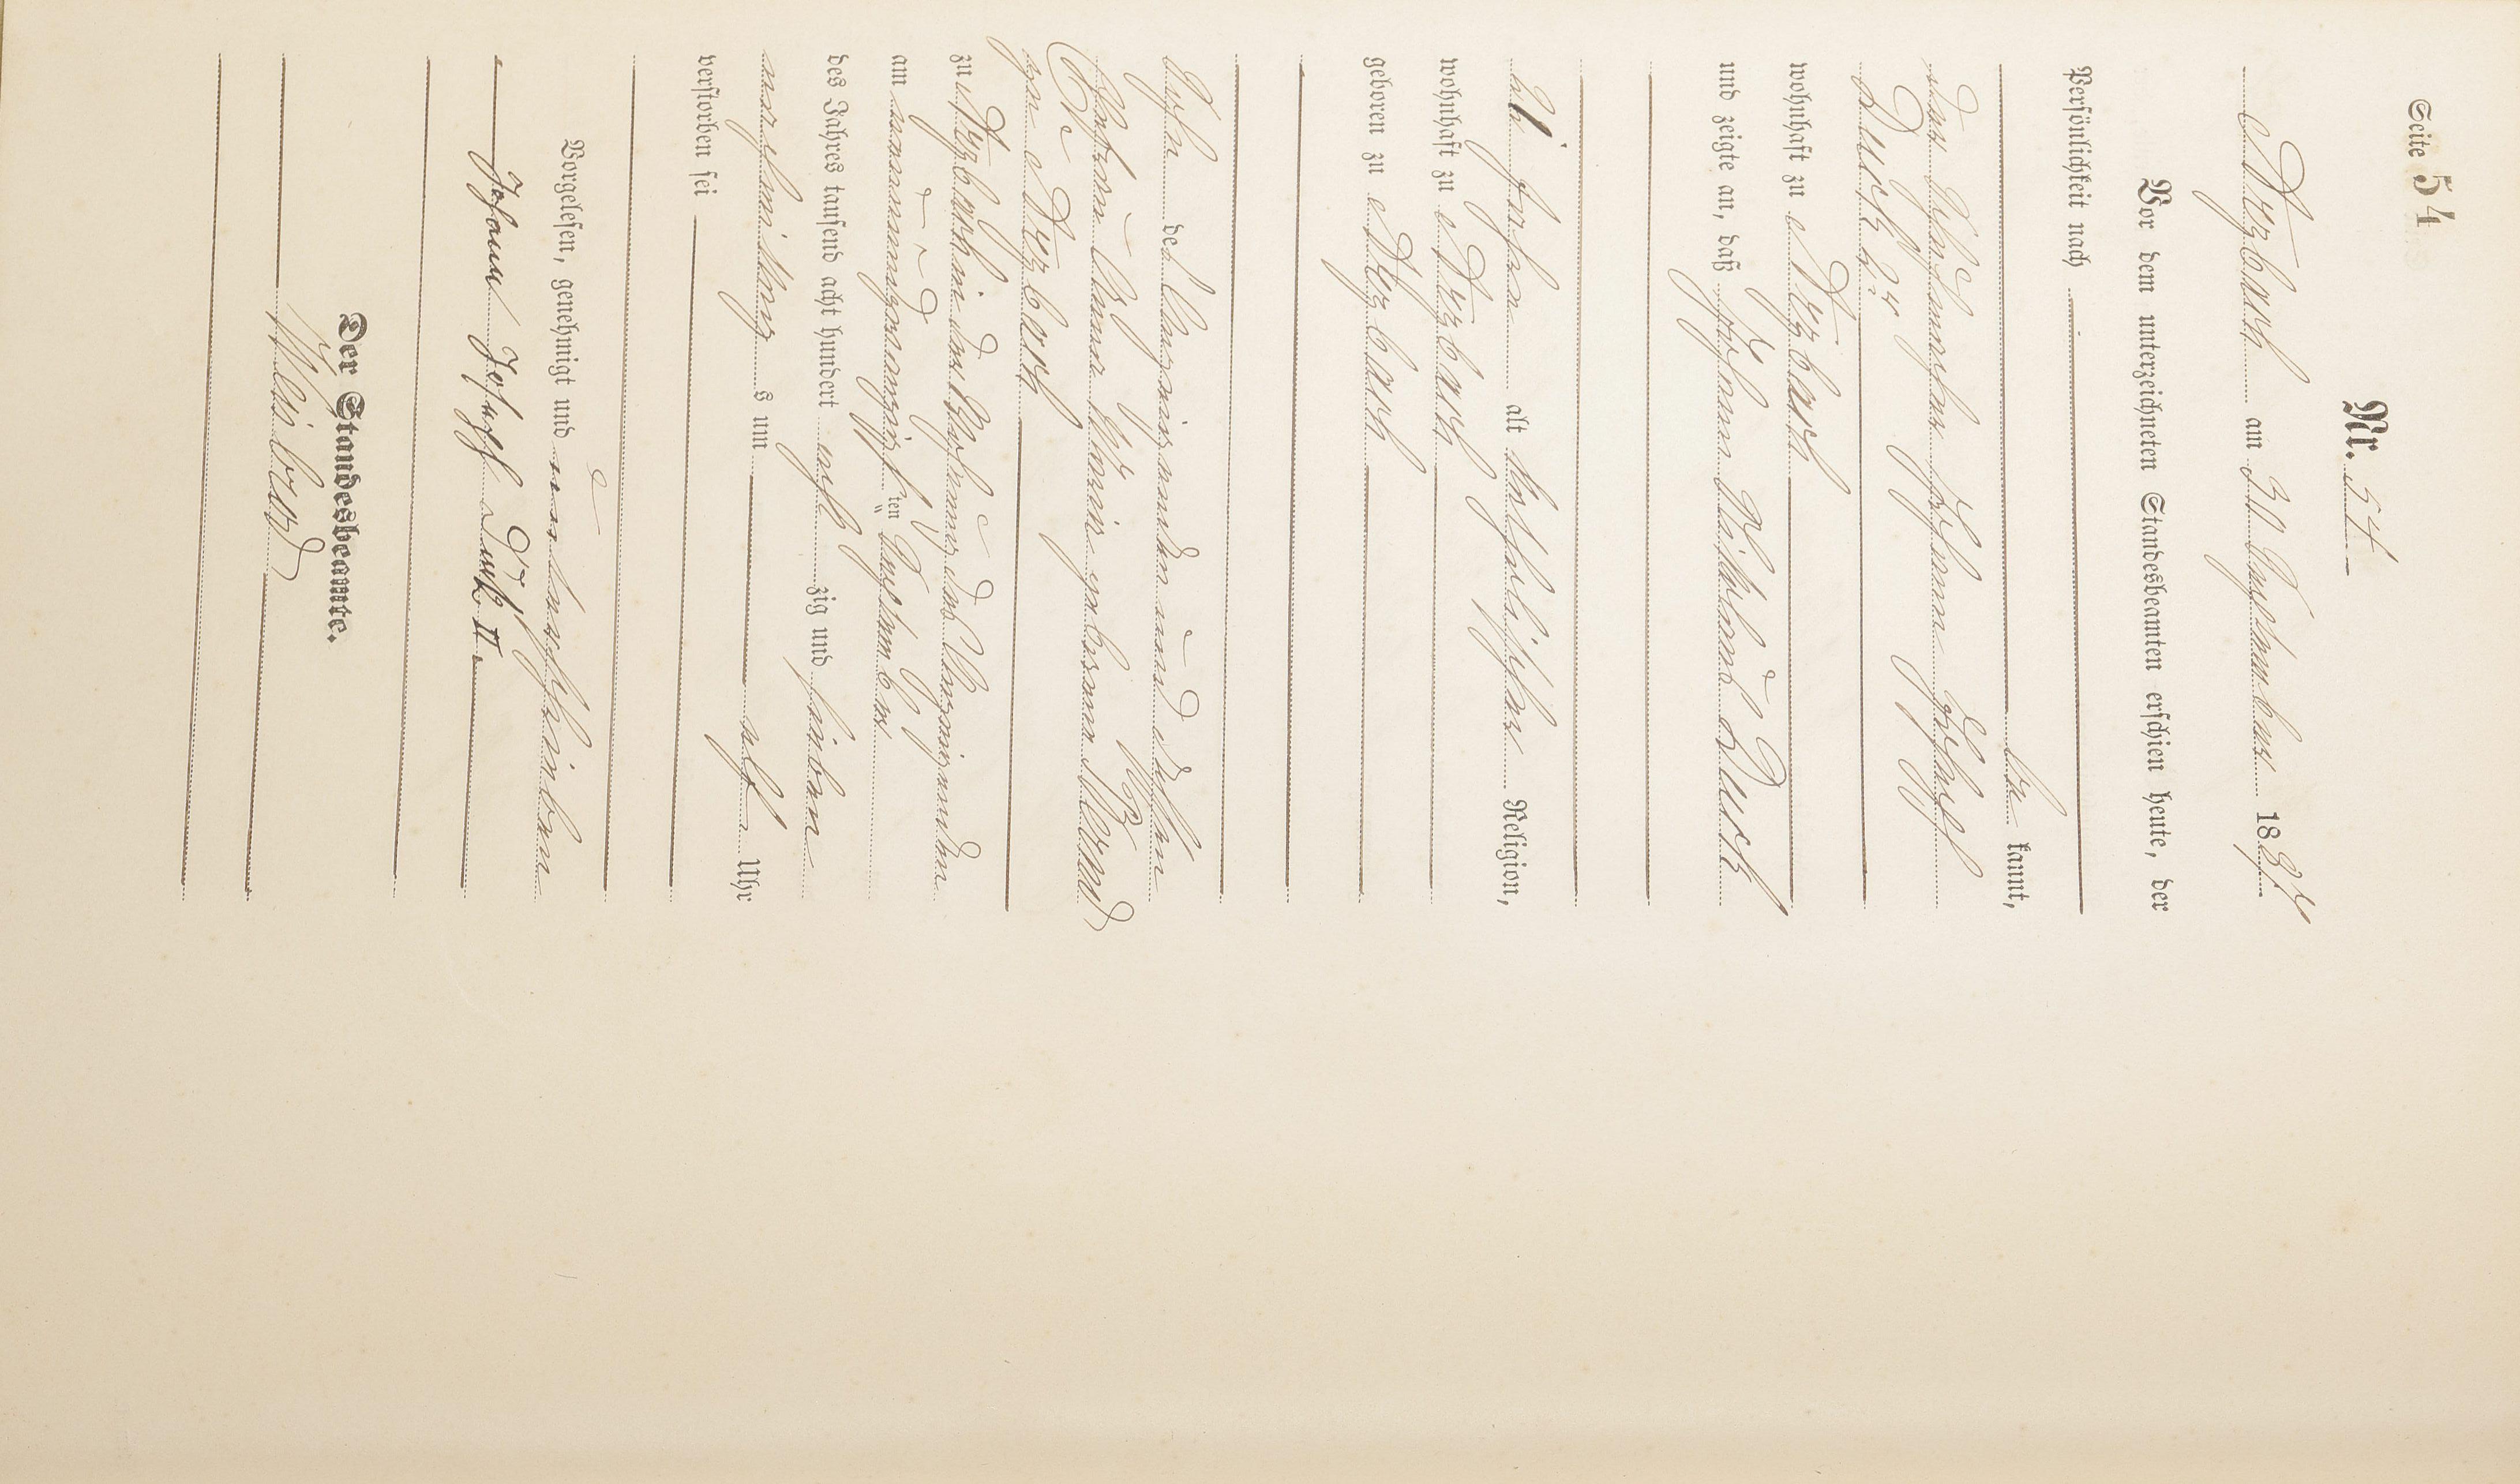 Seite 54
Nr. 54
Atzbach am 30 September 1887
Vor dem unterzeichneten Standesbeamten erschien heute, der
Persönlichkeit nach
be kannt,
der Johann Joseph
Buch 2r
wohnhaft zu Atzbach
und zeigte an, daß Johann Buch
Jahre alt katholischer Religion,
wohnhaft zu Atzbach
geboren zu Atzbach
Sohn des Anzeigenden und dessen
Ehefrau Anna Maria geborene
Atzbach
zu Atzbach in der Wohnung des Anzeigenden
am neunundzwanzigsten September
des Jahres tausend acht hundert acht zig und sieben
Nachmittags um elf Uhr
verstorben sei
Vorgelesen, genehmigt und unterschrieben
Johann Joseph Buch II.
Der Standesbeamte.